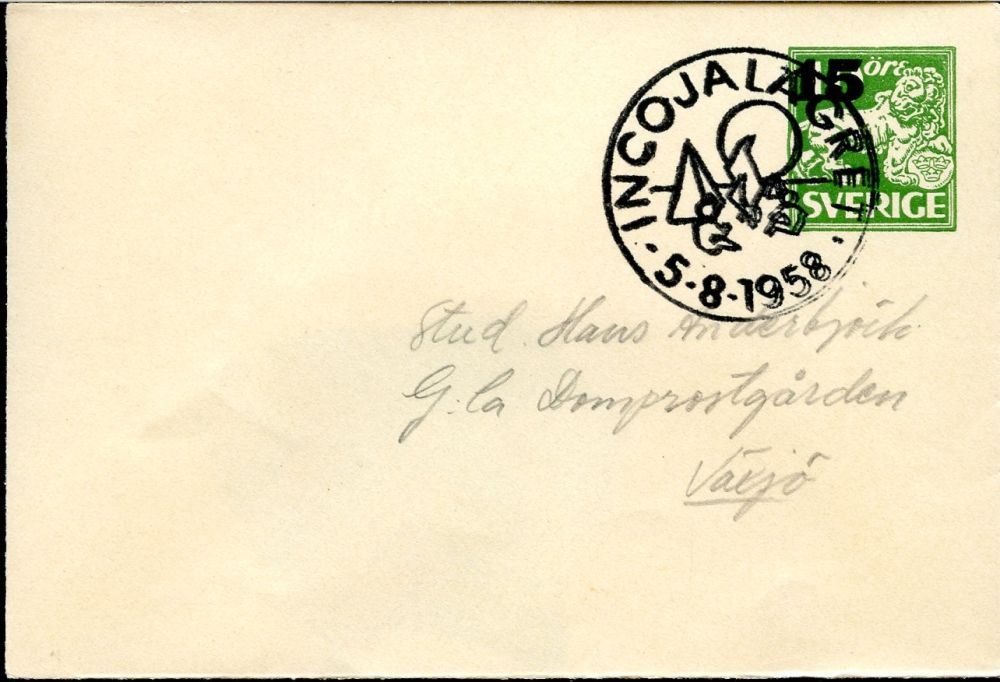 INCOJALÄGRET
5-8-1958
15 öre
SVERIGE
Stud. Hans Anderbjörk
G:la Domprostgården
Växjö